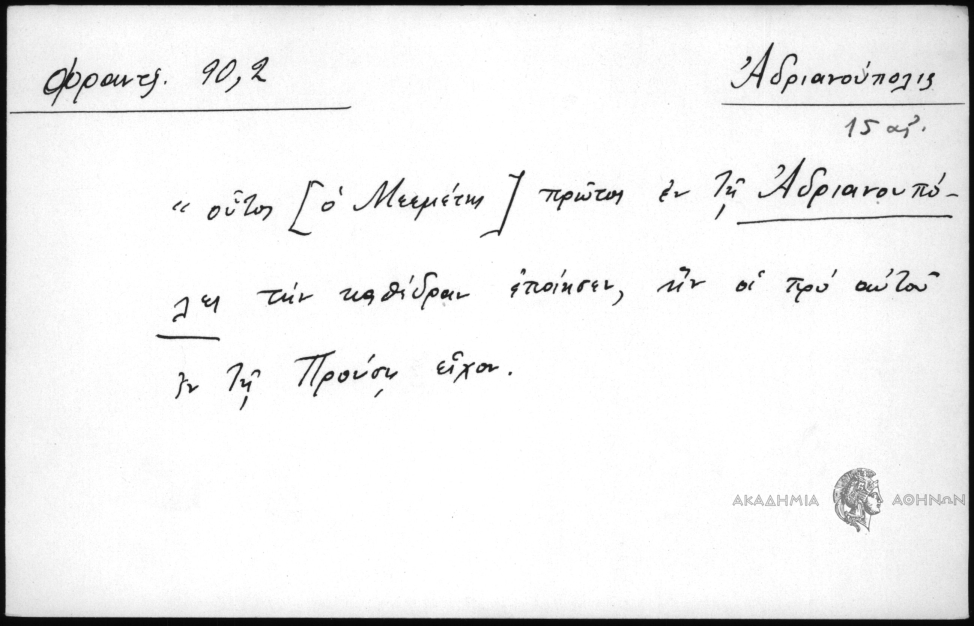 Φραντζ. 90,2
Ἀδριανούπολις
15 αἰ.
“ οὗτος [ὁ Μεεμέτης] πρῶτος ἐν τῇ Ἀδριανουπό-
λει τὴν καθέδραν ἐποίησεν, ἣν οἱ πρό αὐτοῦ
ἐν τῇ Προύσῃ εἶχον.
ΑΚΑΔΗΜΙΑ ΑΘΗΝΩΝ